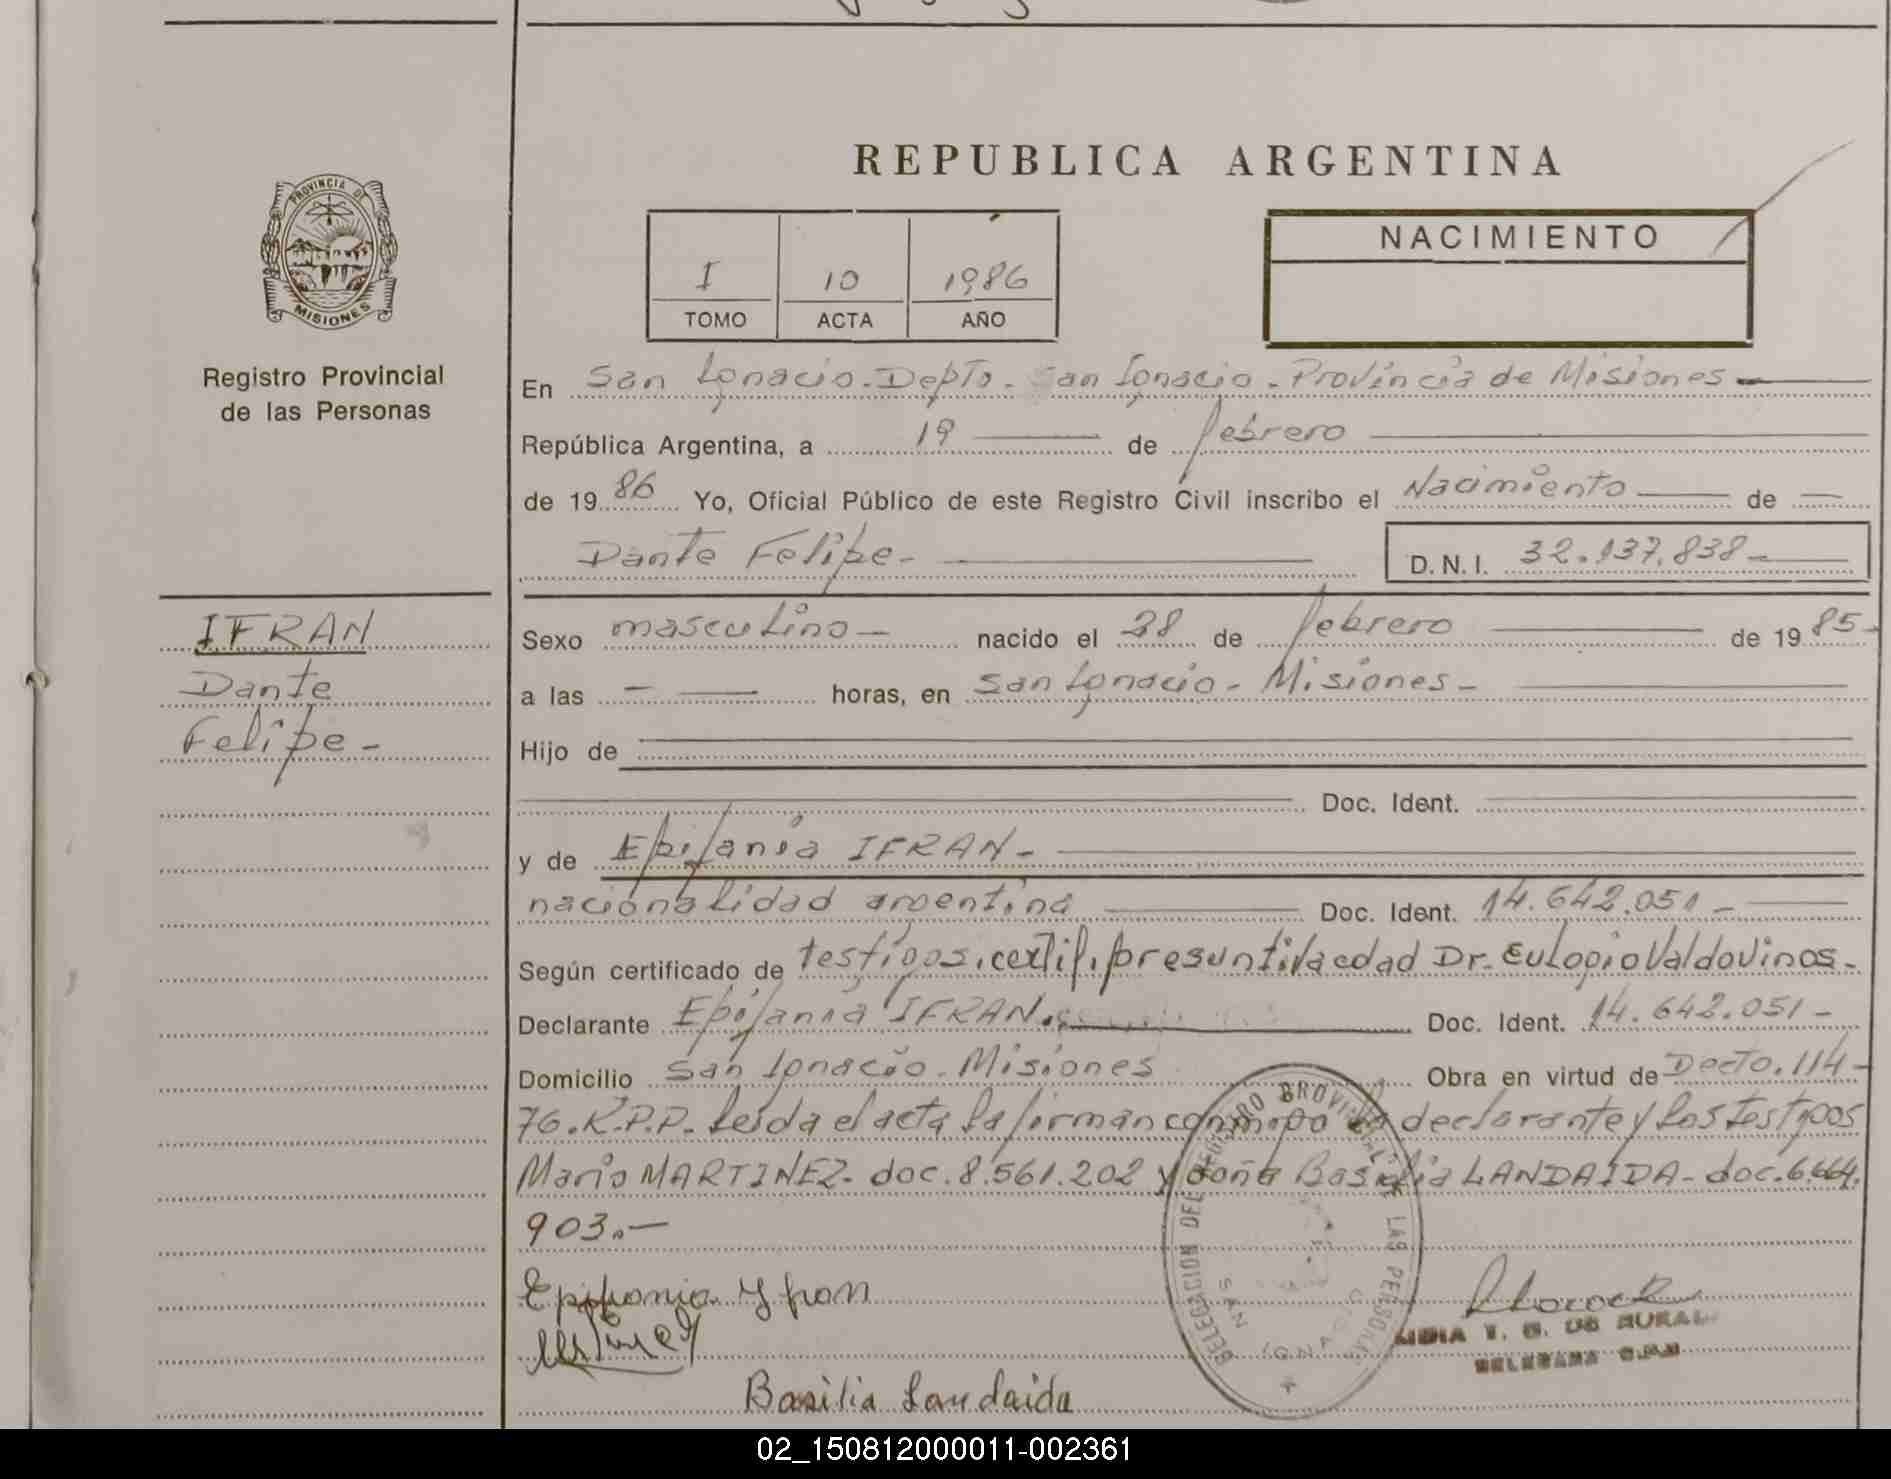 REPUBLICA ARGENTINA
PROVINCIA DE
MISIONES
Registro Provincial
de las Personas
I 10 1986
TOMO ACTA AÑO
NACIMIENTO
En San Ignacio. Depto. San Ignacio. Provincia de Misiones
República Argentina, a 19 de febrero
de 1986 Yo, Oficial Público de este Registro Civil inscribo el Nacimiento de
Dante Felipe- D.N.I. 32.137.838-
IFRAN
Dante
Felipe-
Sexo masculino- nacido el 28 de febrero de 1985-
a las - horas, en San Ignacio- Misiones-
Hijo de
Doc. Ident.
y de Epifania IFRAN-
nacionalidad argentina Doc. Ident. 14.642.051-
Según certificado de testigos, certif. presuntiva edad Dr. Eulogio Valdovinos.-
Declarante Epifania IFRAN. Doc. Ident. 14.642.051-
Domicilio San Ignacio. Misiones Obra en virtud de Decto. 114-
76. K.P.P. Leida el acta la firman conmigo la declarante y los testigos
Mario MARTINEZ- doc. 8.561.202 y doña Basilia LANDAIDA- doc. 6.664.
903.-
Epifania Yfran
Basilia Landaida
DELEGACION DEL REGISTRO PROVINCIAL DE LAS PERSONAS
SAN IGNACIO
LIDIA T. G. DE RURAL
DELEGADA
02_150812000011-002361